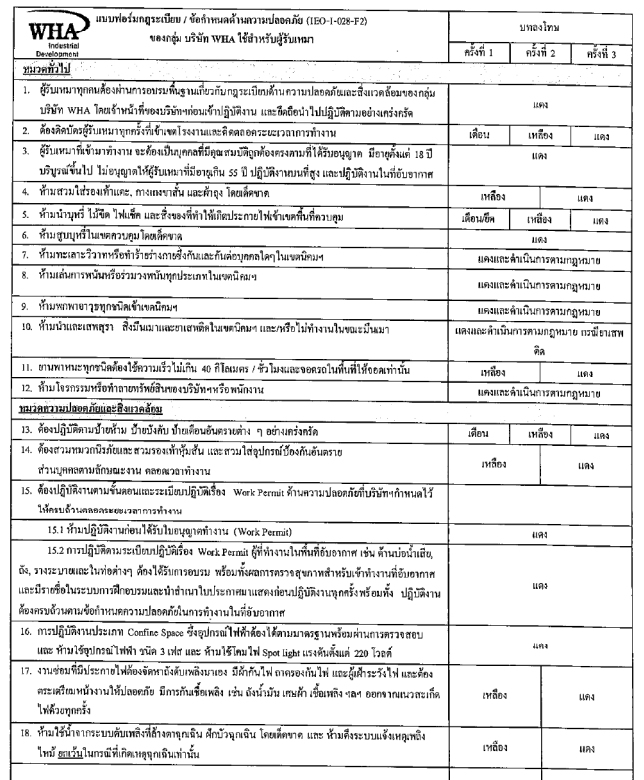 WHA
Industrial
Development
แบบฟอร์มกฎระเบียบ / ข้อกำหนดด้านความปลอดภัย (IEO-1-028-F2)
ของกลุ่ม บริษัท WHA ใช้สำหรับผู้รับเหมา
บทลงโทษ
ครั้งที่ 1 ครั้งที่ 2 ครั้งที่ 3
หมวดทั่วไป
1. ผู้รับเหมาทุกคนต้องผ่านการอบรมพื้นฐานเกี่ยวกับกฎระเบียบด้านความปลอดภัยและสิ่งแวดล้อมของกลุ่ม
บริษัท WHA โดยเจ้าหน้าที่ของบริษัทฯก่อนเข้าปฏิบัติงาน และยึดถือนำไปปฏิบัติตามอย่างเคร่งครัด
แดง
2. ต้องติดบัตรผู้รับเหมาทุกครั้งที่เข้าเขตโรงงานและติดตลอดระยะเวลาการทำงาน
เตือน เหลือง แดง
3. ผู้รับเหมาที่เข้ามาทำงาน จะต้องเป็นบุคคลที่มีคุณสมบัติถูกต้องตรงตามที่ได้รับอนุญาต มีอายุตั้งแต่ 18 ปี
บริบูรณ์ขึ้นไป ไม่อนุญาตให้ผู้รับเหมาที่มีอายุเกิน 55 ปี ปฏิบัติงานบนที่สูง และปฏิบัติงานในที่อับอากาศ
แดง
4. ห้ามสวมใส่รองเท้าแตะ, กางเกงขาสั้น และผ้าถุง โดยเด็ดขาด
เหลือง แดง
5. ห้ามนำบุหรี่ ไม้ขีด ไฟแช็ค และสิ่งของที่ทำให้เกิดประกายไฟเข้าเขตพื้นที่ควบคุม
เตือน/ยึด เหลือง แดง
6. ห้ามสูบบุหรี่ในเขตควบคุมโดยเด็ดขาด
แดง
7. ห้ามทะเลาะวิวาทหรือทำร้ายร่างกายซึ่งกันและกันต่อบุคคลใดๆในเขตนิคมฯ
แดงและดำเนินการตามกฎหมาย
8. ห้ามเล่นการพนันหรือร่วมวงพนันทุกประเภทในเขตนิคมฯ
แดงและดำเนินการตามกฎหมาย
9. ห้ามพกพาอาวุธทุกชนิดเข้าเขตนิคมฯ
แดงและดำเนินการตามกฎหมาย
10. ห้ามนำและเสพสุรา สิ่งมึนเมาและยาเสพติดในเขตนิคมฯ และ/หรือไม่ทำงานในขณะมึนเมา
แดงและดำเนินการตามกฎหมาย กรณียาเสพ
ติด
11. ยานพาหนะทุกชนิดต้องใช้ความเร็วไม่เกิน 40 กิโลเมตร / ชั่วโมงและจอดรถในพื้นที่ให้จอดเท่านั้น
เหลือง แดง
12. ห้ามโจรกรรมหรือทำลายทรัพย์สินของบริษัทฯหรือพนักงาน
แดงและดำเนินการตามกฎหมาย
หมวดความปลอดภัยและสิ่งแวดล้อม
13. ต้องปฏิบัติตามป้ายห้าม ป้ายบังคับ ป้ายเตือนอันตรายต่าง ๆ อย่างเคร่งครัด
เตือน เหลือง แดง
14. ต้องสวมหมวกนิรภัยและสวมรองเท้าหุ้มส้น และสวมใส่อุปกรณ์ป้องกันอันตราย
ส่วนบุคคลตามลักษณะงาน ตลอดเวลาทำงาน
เหลือง แดง
15. ต้องปฏิบัติงานตามขั้นตอนและระเบียบปฏิบัติเรื่อง Work Permit ด้านความปลอดภัยที่บริษัทฯกำหนดไว้
ให้ครบถ้วนตลอดระยะเวลาการทำงาน
15.1 ห้ามปฏิบัติงานก่อนได้รับใบอนุญาตทำงาน (Work Permit)
แดง
15.2 การปฏิบัติตามระเบียบปฏิบัติเรื่อง Work Permit ผู้ที่ทำงานในพื้นที่อับอากาศ เช่น ด้านบ่อน้ำเสีย,
ถัง, รางระบายและในท่อต่างๆ ต้องได้รับการอบรม พร้อมทั้งผลการตรวจสุขภาพสำหรับเข้าทำงานที่อับอากาศ
และมีรายชื่อในระบบการฝึกอบรมและนำสำเนาใบประกาศมาแสดงก่อนปฏิบัติงานทุกครั้งพร้อมทั้ง ปฏิบัติงาน
ต้องครบถ้วนตามข้อกำหนดความปลอดภัยในการทำงานในที่อับอากาศ
แดง
16. การปฏิบัติงานประเภท Confine Space ซึ่งอุปกรณ์ไฟฟ้าต้องได้ตามมาตรฐานพร้อมผ่านการตรวจสอบ
และ ห้ามใช้อุปกรณ์ไฟฟ้า ชนิด 3 เฟส และ ห้ามใช้โคมไฟ Spot light แรงดันตั้งแต่ 220 โวลต์
แดง
17. งานซ่อมที่มีประกายไฟต้องจัดหาถังดับเพลิงมาเอง มีผ้ากันไฟ ถาดรองกันไฟ และผู้เฝ้าระวังไฟ และต้อง
ตระเตรียมหน้างานให้ปลอดภัย มีการกันเชื้อเพลิง เช่น ถังน้ำมัน เศษผ้า เชื้อเพลิง ฯลฯ ออกจากแนวสะเก็ด
ไฟด้วยทุกครั้ง
เหลือง แดง
18. ห้ามใช้น้ำจากระบบดับเพลิงที่ล้างตาฉุกเฉิน ฝักบัวฉุกเฉิน โดยเด็ดขาด และ ห้ามดึงระบบแจ้งเหตุเพลิง
ไหม้ ยกเว้นในกรณีที่เกิดเหตุฉุกเฉินเท่านั้น
เหลือง แดง